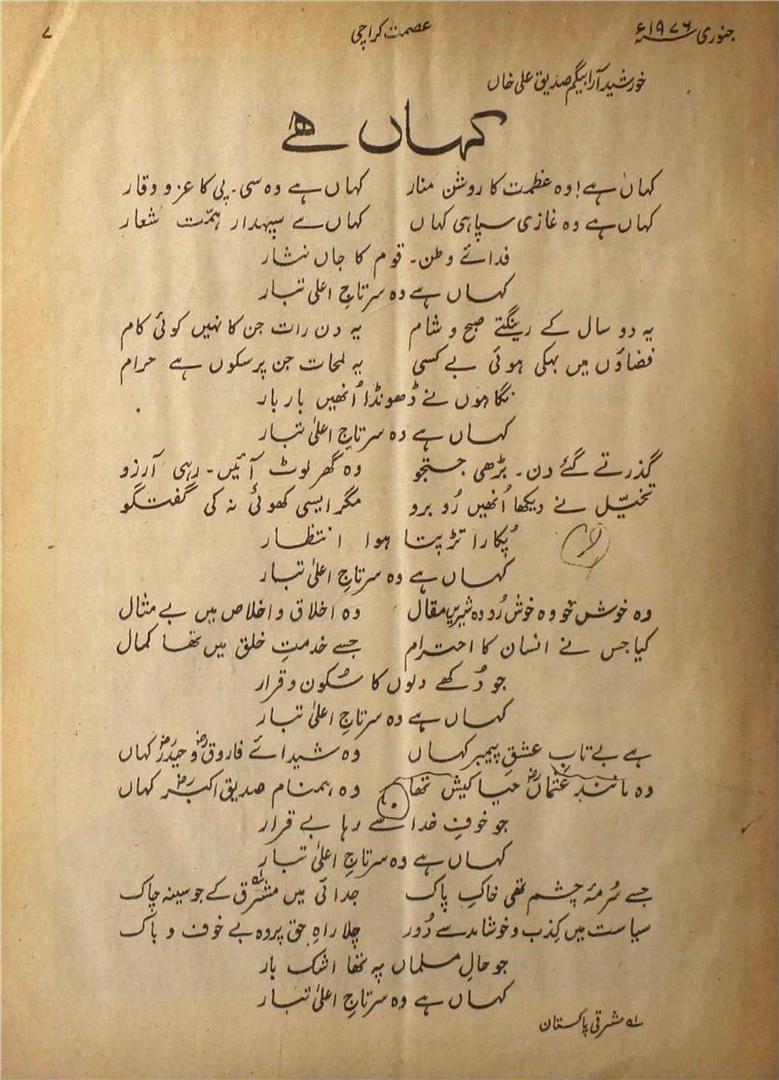 جنوری سنہ ۱۹۷۶ء عصمت کراچی ۷
خورشید آرا بیگم صدیق علی خاں
کہاں ہے
کہاں ہے وہ عظمت کا روشن منار کہاں ہے وہ سی۔ پی کا عز و وقار
کہاں ہے وہ غازی سپاہی کہاں کہاں ہے سپہدار ہمّت شعار
فدائے وطن۔ قوم کا جاں نثار
کہاں ہے وہ سرتاجِ اعلیٰ تبار
یہ دو سال کے رینگتے صبح و شام یہ دن رات جن کا نہیں کوئی کام
فضاؤں میں بہکی ہوئی بے کسی یہ لمحات جن پر سکوں ہے حرام
نگاہوں نے ڈھونڈا اُنھیں بار بار
کہاں ہے وہ سرتاجِ اعلیٰ تبار
گذرتے گئے دن۔ بڑھی جستجو وہ گھر لوٹ آئیں۔ رہی آرزو
تخیّل نے دیکھا اُنھیں رُو برو مگر ایسی کھوئی نہ کی گفتگو
پُکارا تڑپتا ہوا انتظار
کہاں ہے وہ سرتاجِ اعلیٰ تبار
وہ خوش خو وہ خوش رُو وہ شیریں مقال وہ اخلاق و اخلاص میں بے مثال
کیا جس نے انسان کا احترام جسے خدمتِ خلق میں تھا کمال
جو دُکھے دلوں کا سُکون و قرار
کہاں ہے وہ سرتاجِ اعلیٰ تبار
ہے بے تاب عشقِ پیمبر کہاں وہ شیدائے فاروقؓ و حیدرؓ کہاں
وہ مانند عثمانؓ حیا کیش تھا وہ ہمنام صدیق اکبرؓ کہاں
جو خوفِ خدا سے رہا بے قرار
کہاں ہے وہ سرتاجِ اعلیٰ تبار
جسے سُرمۂ چشم تھی خاکِ پاک جدائی میں مشرق لہ کے جو سینہ چاک
سیاست میں کِذب و خوشامد سے دُور چلا راہِ حق پر وہ بے خوف و باک
جو حالِ مسلماں پہ تھا اشک بار
کہاں ہے وہ سرتاجِ اعلیٰ تبار
لہ مشرقی پاکستان